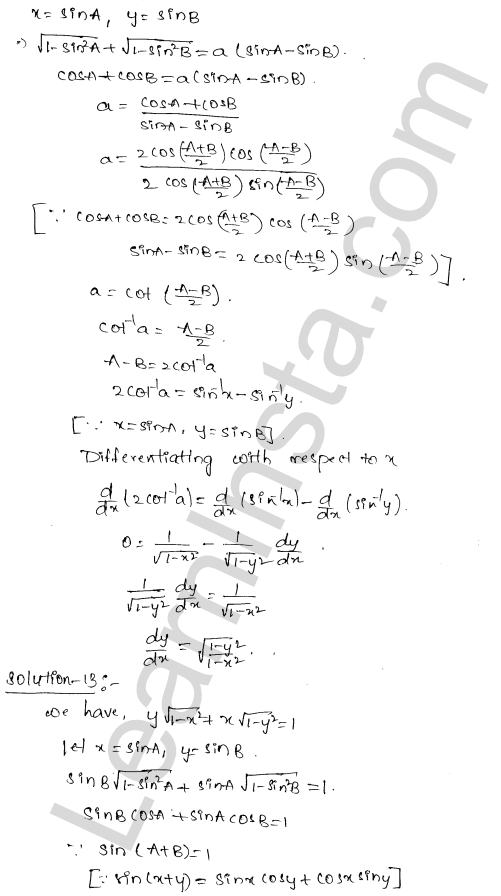 x = sinA, y = sinB
∴) √1-sin²A + √1-sin²B = a (sinA - sinB).
cosA + cosB = a(sinA - sinB).
a = cosA + cosB / sinA - sinB
a = 2 cos(A+B/2) cos(A-B/2) / 2 cos(A+B/2) sin(A-B/2)
[∵ cosA + cosB = 2 cos(A+B/2) cos(A-B/2)
sinA - sinB = 2 cos(A+B/2) sin(A-B/2)].
a = cot (A-B/2).
cot⁻¹a = A-B/2.
A-B = 2cot⁻¹a
2cot⁻¹a = sin⁻¹x - sin⁻¹y.
[∵ x = sinA, y = sinB].
Differentiating with respect to x
d/dx (2cot⁻¹a) = d/dx (sin⁻¹x) - d/dx (sin⁻¹y).
0 = 1/√1-x² - 1/√1-y² dy/dx.
1/√1-y² dy/dx = 1/√1-x²
dy/dx = √1-y²/1-x².
Solution-13:-
we have, y√1-x² + x√1-y² = 1
let x = sinA, y = sinB.
sinB√1-sin²A + sinA √1-sin²B = 1.
sinB cosA + sinA cosB = 1
∵ sin (A+B) = 1
[∵ sin(x+y) = sinx cosy + cosx siny]
LearnInsta.com